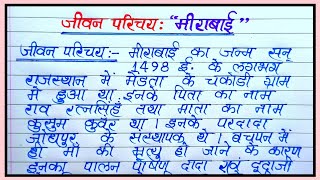 जीवन परिचय: "मीराबाई"
जीवन परिचय:- मीराबाई का जन्म सन्
1498 ई॰ के लगभग
राजस्थान में मेड़ता के चकोड़ी ग्राम
में हुआ था। इनके पिता का नाम
राव रत्नसिंह तथा माता का नाम
कुसुम कुंवर था। इनके परदादा
जोधपुर के संस्थापक थे। बचपन में
ही माँ की मृत्यु हो जाने के कारण
इनका पालन पोषण दादा राव दूदाजी